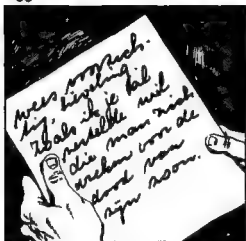 wees voorzich-
tig, lieveling.
Zoals ik je al
vertelde wil
die man zich
wreken voor de
dood van
zijn zoon.